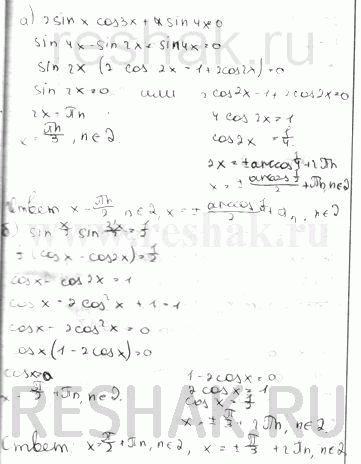 а) 2 sin x cos3x + 4 sin 4x=0
sin 4x - sin 2x + sin 4x = 0
sin 2x (2 cos 2x - 1 + 2cos2x) = 0
sin 2x = 0 или 2cos2x - 1 + 2cos2x = 0
2x = πn 4 cos 2x = 1
x = πn/2, n∈Z cos2x = 1/4
2x = ± arccos 1/4 + 2πn
x = ± arccos 1/4 / 2 + πn, n∈Z
Ответ x - πn/2, n∈Z, x = ± arccos 1/4 / 2 + πn, n∈Z
б) sin x/2 sin 3x/2 = 1/2
(cos x - cos2x) = 1/2
cosx - cos 2x = 1
cos x - 2cos²x + 1 = 1
cosx - 2cos²x = 0
cosx (1 - 2cosx) = 0
cosx=0 1 - 2cosx = 0
2 cosx = 1
x - π/2 + πn, n∈Z cos x = 1/2
x = ± π/3 + 2πn, n∈Z
Ответ: x = π/2 + πn, n∈Z, x = ± π/3 + 2πn, n∈Z
RESHAK.RU